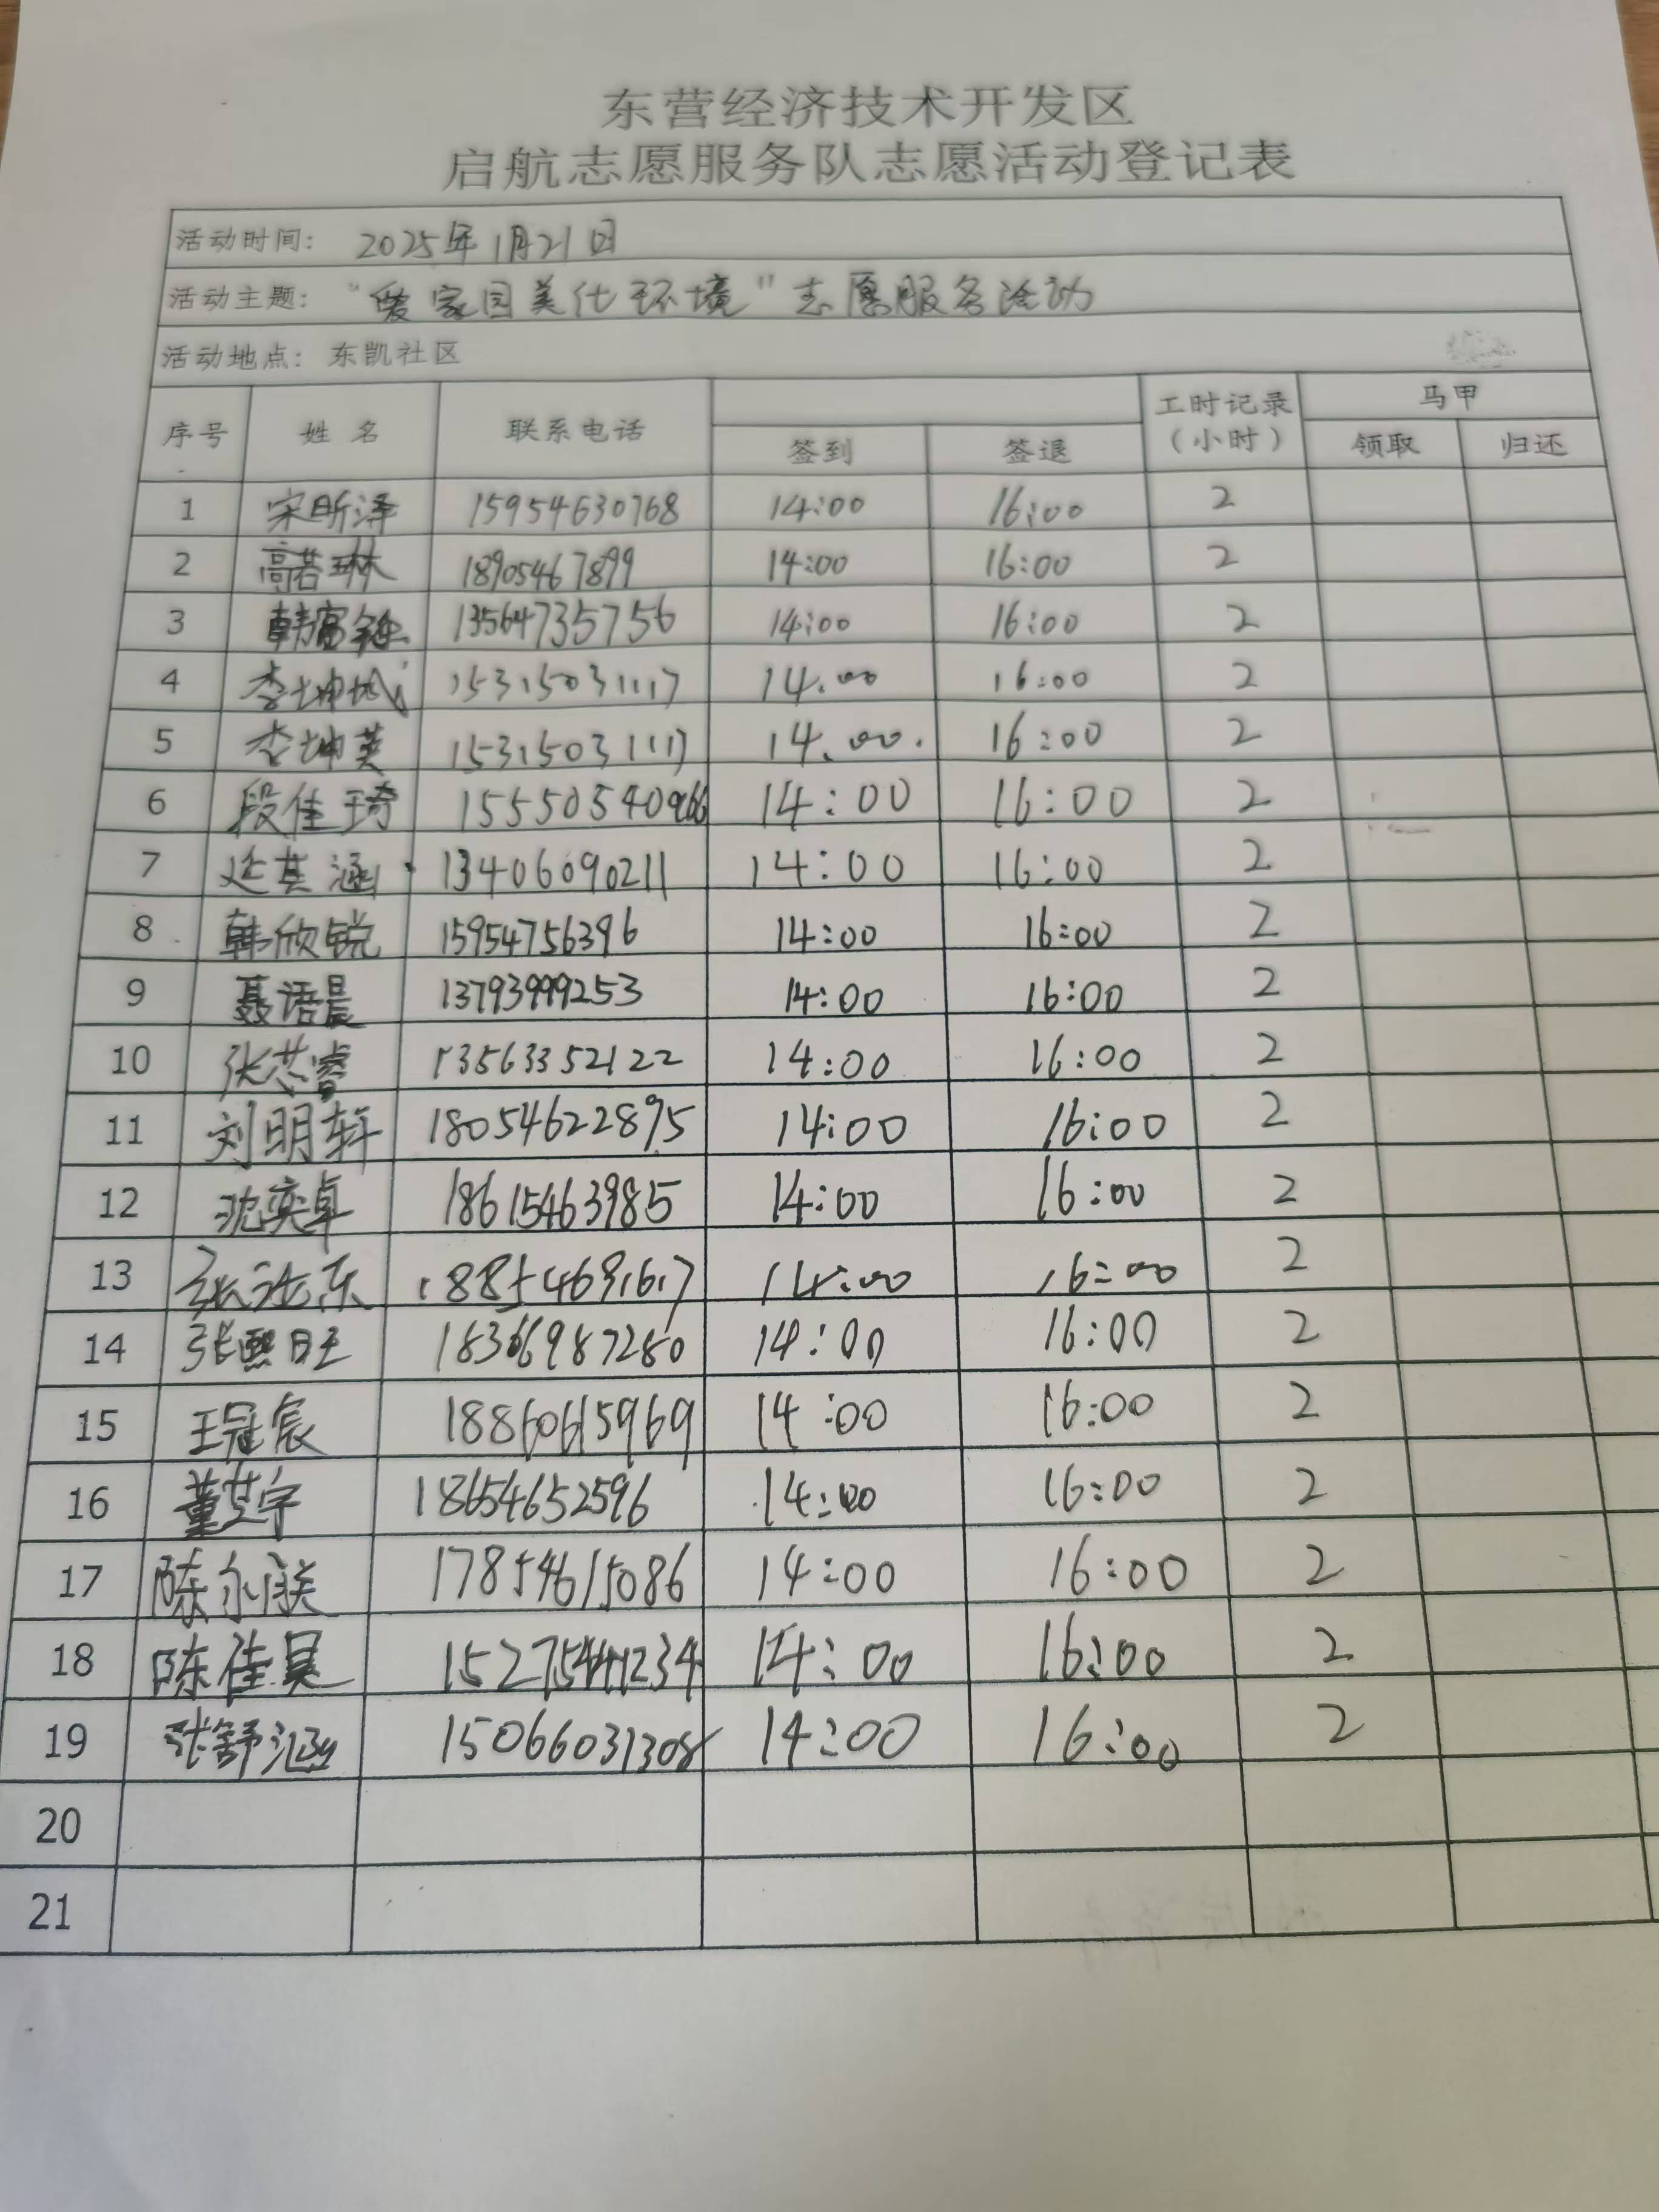 东营经济技术开发区
启航志愿服务队志愿活动登记表
活动时间： 2025年1月21日
活动主题： “爱家园美化环境”志愿服务活动
活动地点：东凯社区
序号 姓名 联系电话 签到 签退 工时记录（小时） 马甲 领取 归还
1 宋昕泽 15954630768 14:00 16:00 2
2 高若琳 18905467899 14:00 16:00 2
3 韩富 13564735756 14:00 16:00 2
4 李坤 15315031117 14:00 16:00 2
5 李坤英 15315031117 14:00. 16:00 2
6 段佳琦 15550540966 14:00 16:00 2
7 延其涵 13406090211 14:00 16:00 2
8 韩欣锐 15954756396 14:00 16:00 2
9 聂语晨 13793999253 14:00 16:00 2
10 张芯睿 13563352122 14:00 16:00 2
11 刘明轩 18054622895 14:00 16:00 2
12 沈奕卓 18615463985 14:00 16:00 2
13 张东 18854691617 14:00 16:00 2
14 张熙旺 18366987280 14:00 16:00 2
15 王冠宸 18860615969 14:00 16:00 2
16 董芝宇 18654652596 14:00 16:00 2
17 陈尔 17854615086 14:00 16:00 2
18 陈佳昊 15275441234 14:00 16:00 2
19 张舒涵 15066031308 14:00 16:00 2
20
21